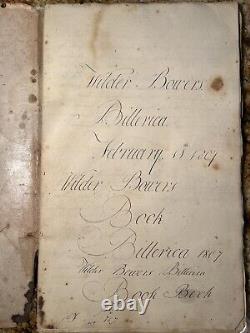 Wilder Bowers
Billerica
February 15 1807
Wilder Bowers
Book
Billerica 1807
Wilder Bowers Billerica
Book Book